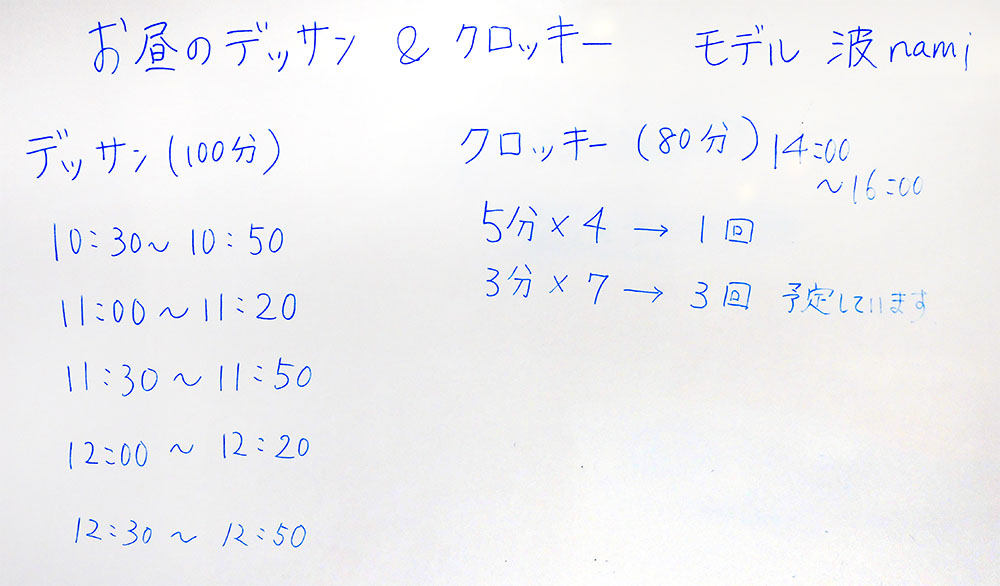 お昼のデッサン & クロッキー モデル 波 nami
デッサン (100分)
10:30〜10:50
11:00〜11:20
11:30〜11:50
12:00 〜 12:20
12:30 〜 12:50
クロッキー (80分) 14:00
〜16:00
5分×4 → 1回
3分×7 → 3回 予定しています